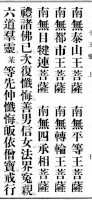 南無泰山王菩薩　南無平等王菩薩
南無都市王菩薩　南無轉輪王菩薩
南無目犍連菩薩　南無四承相菩薩
禮諸佛已次復懺悔善男信女法界冤親
六道羣靈 某等先伸懺悔皈依僧寶戒行